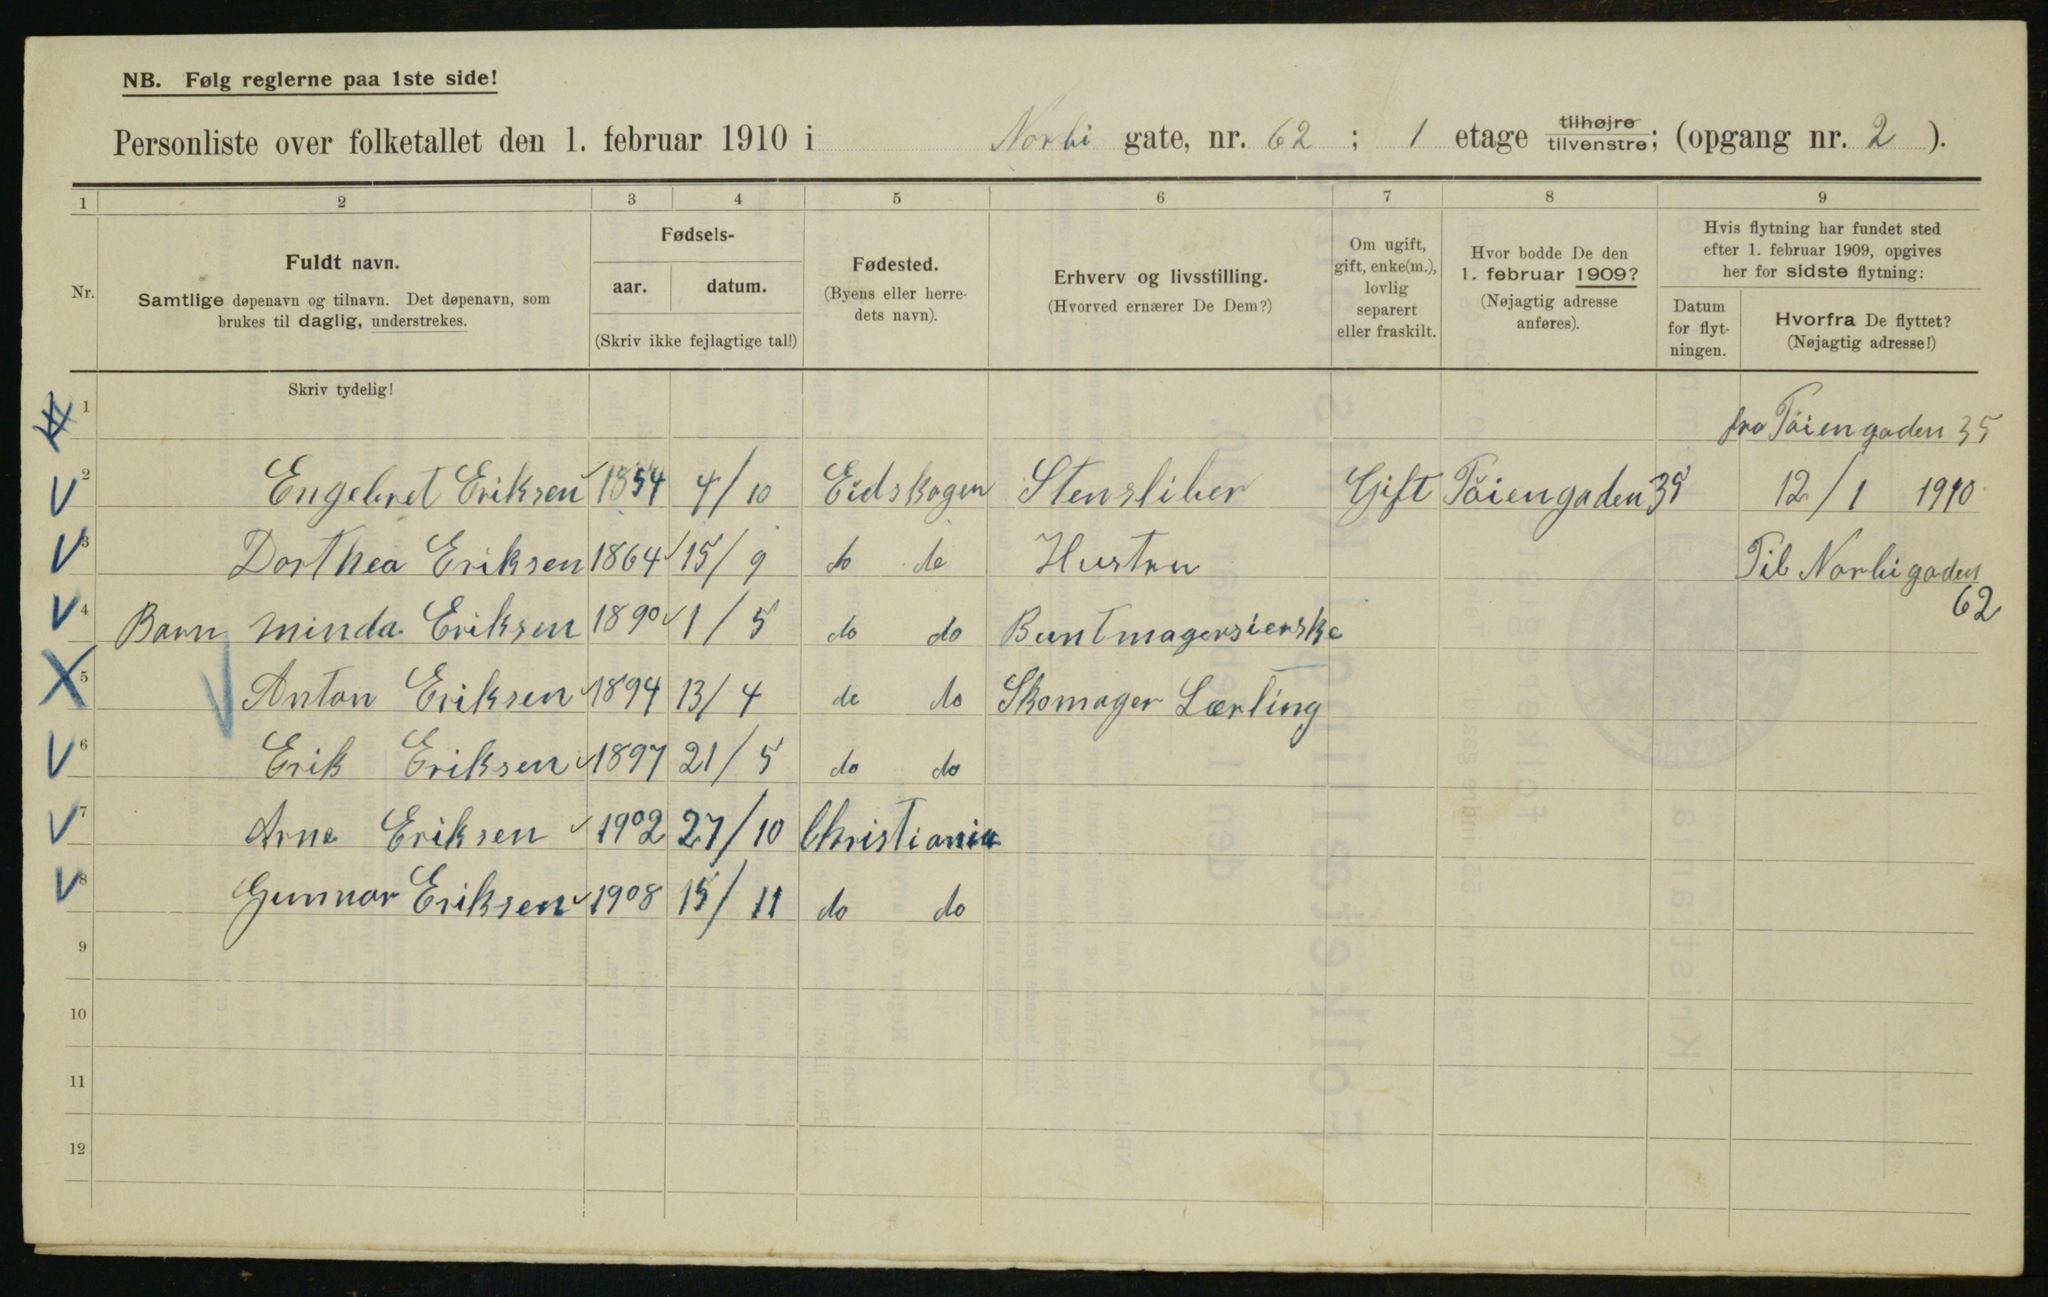 NB. Følg reglerne paa 1ste side!
Personliste over folketallet den 1. februar 1910 i Norbi gate, nr. 62 ; 1 etage tilhøjre tilvenstre; (opgang nr. 2 ).
1 2 3 4 5 6 7 8 9
Nr.
Fuldt navn.
Samtlige døpenavn og tilnavn. Det døpenavn, som
brukes til daglig, understrekes.
Fødsels-
aar. datum.
(Skriv ikke fejlagtige tal!)
Fødested.
(Byens eller herre-
dets navn).
Erhverv og livsstilling.
(Hvorved ernærer De Dem?)
Om ugift,
gift, enke(m.),
lovlig
separert
eller fraskilt.
Hvor bodde De den
1. februar 1909?
(Nøjagtig adresse
anføres).
Hvis flytning har fundet sted
efter 1. februar 1909, opgives
her for sidste flytning:
Datum
for flyt-
ningen.
Hvorfra De flyttet?
(Nøjagtig adresse!)
Skriv tydelig!
1 fra Töiengaden 35
2 Engebret Eriksen 1854 4/10 Eidskogen Stensliber Gift Töiengaden 35 12/1 1910
3 Dorthea Eriksen 1864 15/9 do do Hustru Til Norbigaden
62
4 Barn Minda Eriksen 1890 1/5 do do Buntmagersierske
5 Anton Eriksen 1894 13/4 do do Skomager Lærling
6 Erik Eriksen 1897 21/5 do do
7 Arne Eriksen 1902 27/10 Christiania
8 Gunnar Eriksen 1908 15/11 do do
9
10
11
12